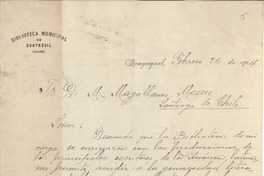 BIBLIOTECA MUNICIPAL
DE
GUAYAQUIL
Guayaquil, Febrero 26 de 1904
Sr. D. M. Magallanes Moure
Santiago de Chile
Señor:
Deseando que la Biblioteca de mi
cargo se enriquezca con las producciones de
los principales escritores de la América Latina,
me permito acudir a la generosidad